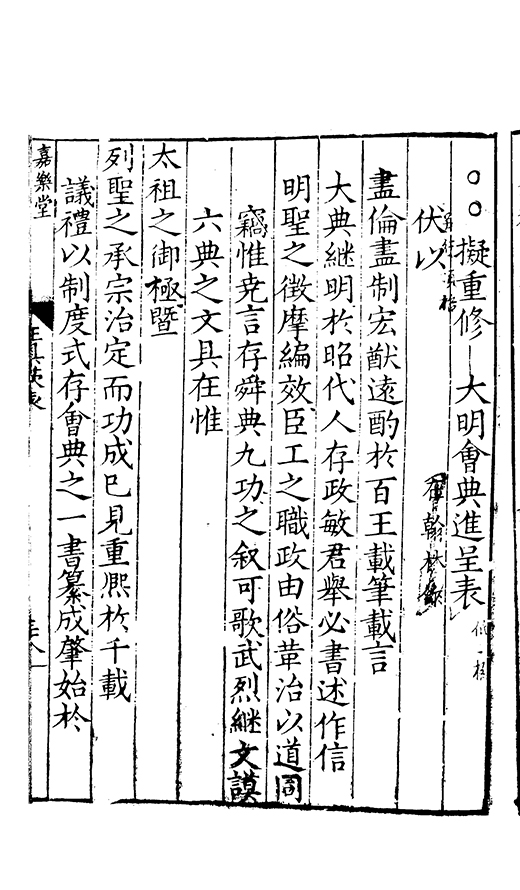 擬重修　大明會典進呈表
伏以
盡倫盡制宏猷遠酌於百王載筆載言
大典継明於昭代人存政敏君舉必書述作信
明聖之徴摩編效臣工之職政由俗革治以道同
竊惟堯言存舜典九功之叙可歌武烈継文謨
六典之文具在惟
太祖之御極曁
列聖之承宗治定而功成已見重熈於千載
議禮以制度式存會典之一書纂成肇始於
嘉樂堂